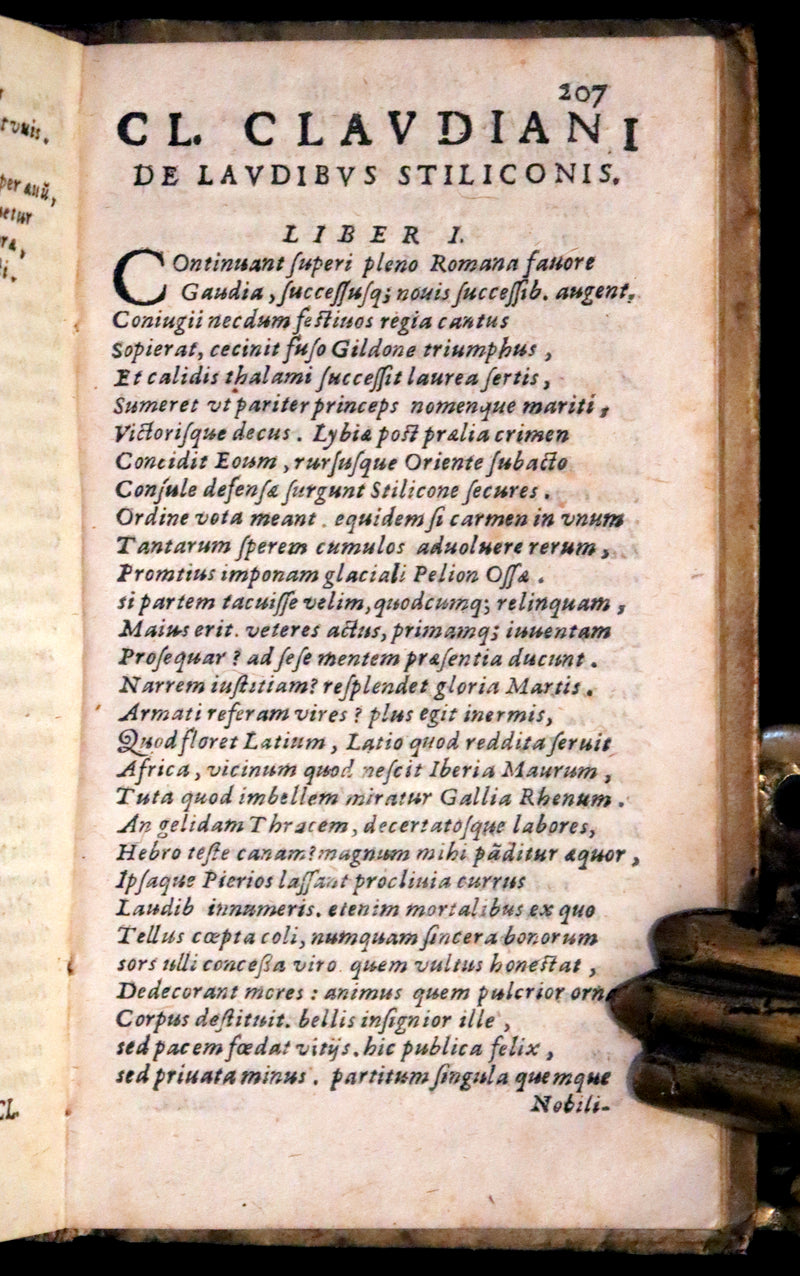 tvuis.
perauũ,
etur
ra,
i.
CL.
207
CL. CLAVDIANI
DE LAVDIBVS STILICONIS.
LIBER I.
COntinuant ſuperi pleno Romana fauore
Gaudia, ſucceſſuſq; nouis ſucceſſib. augent.
Coniugii necdum feſtiuos regia cantus
Sopierat, cecinit fuſo Gildone triumphus,
Et calidis thalami ſucceſſit laurea ſertis,
Sumeret vt pariter princeps nomenque mariti,
Victoriſque decus. Lybiæ poſt prælia crimen
Concidit Eoum, rurſuſque Oriente ſubacto
Conſule defenſæ ſurgunt Stilicone ſecures.
Ordine vota meant. equidem ſi carmen in vnum
Tantarum ſperem cumulos aduoluere rerum,
Promtius imponam glaciali Pelion Oſſæ.
si partem tacuiſſe velim, quodcumq; relinquam,
Maius erit. veteres actus, primamq; iuuentam
Proſequar? ad ſeſe mentem præſentia ducunt.
Narrem iuſtitiam? reſplendet gloria Martis.
Armati referam vires? plus egit inermis,
Quod floret Latium, Latio quod reddita ſeruit
Africa, vicinum quod neſcit Iberia Maurum,
Tuta quod imbellem miratur Gallia Rhenum.
An gelidam Thracem, decertatoſque labores,
Hebro teſte canam? magnum mihi pãditur æquor,
Ipſaque Pierios laſſant procliuia currus
Laudib innumeris. etenim mortalibus ex quo
Tellus cœpta coli, numquam ſincera bonorum
sors ulli conceßa viro. quem vultus honeſtat,
Dedecorant mores: animus quem pulcrior orna
Corpus deſtituit. bellis inſignior ille,
sed pacem fœdat vitijs. hic publica felix,
sed priuata minus. partitum ſingula quemque
Nobili-